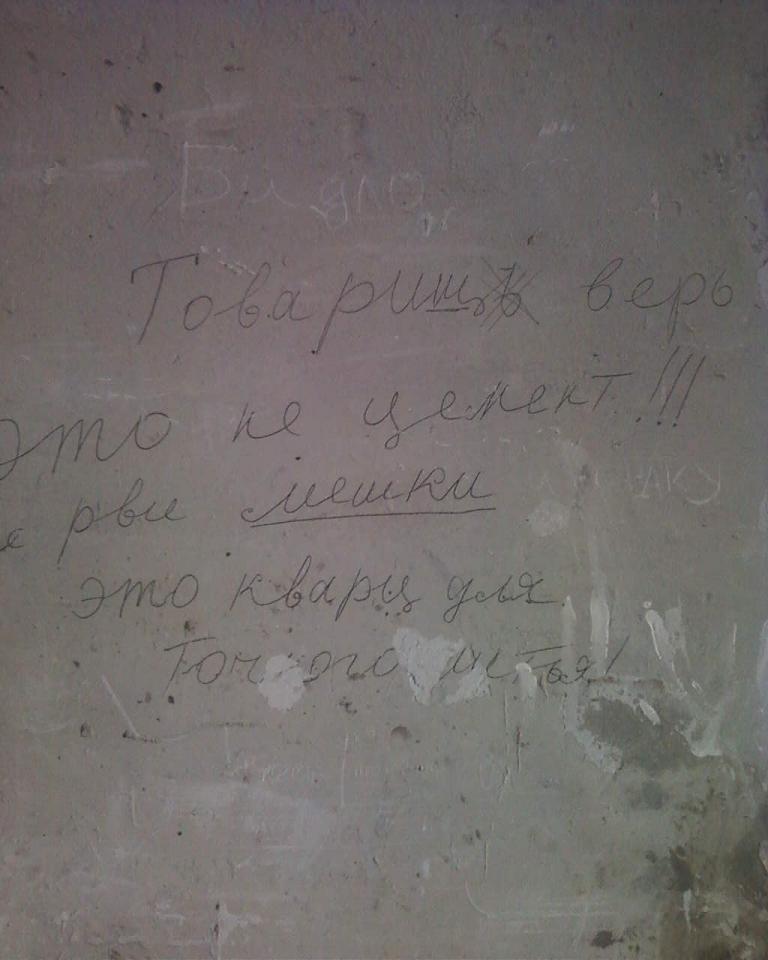 Быдло
Товарищ верь
это не цемент!!!
не рви мешки
это кварц для
Точного литья!